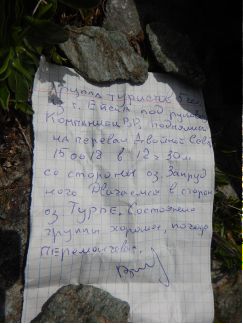 Группа туристов
из г. Ейска под руков.
Компанией В.Р. поднялись
на перевал Двойной Седл
15.08.13 в 12ч 30м
со стороны оз. Запруд
ного. Двигаемся в сторон
оз. Турье. Состояние
группы хорошее, погода
переменчивая.